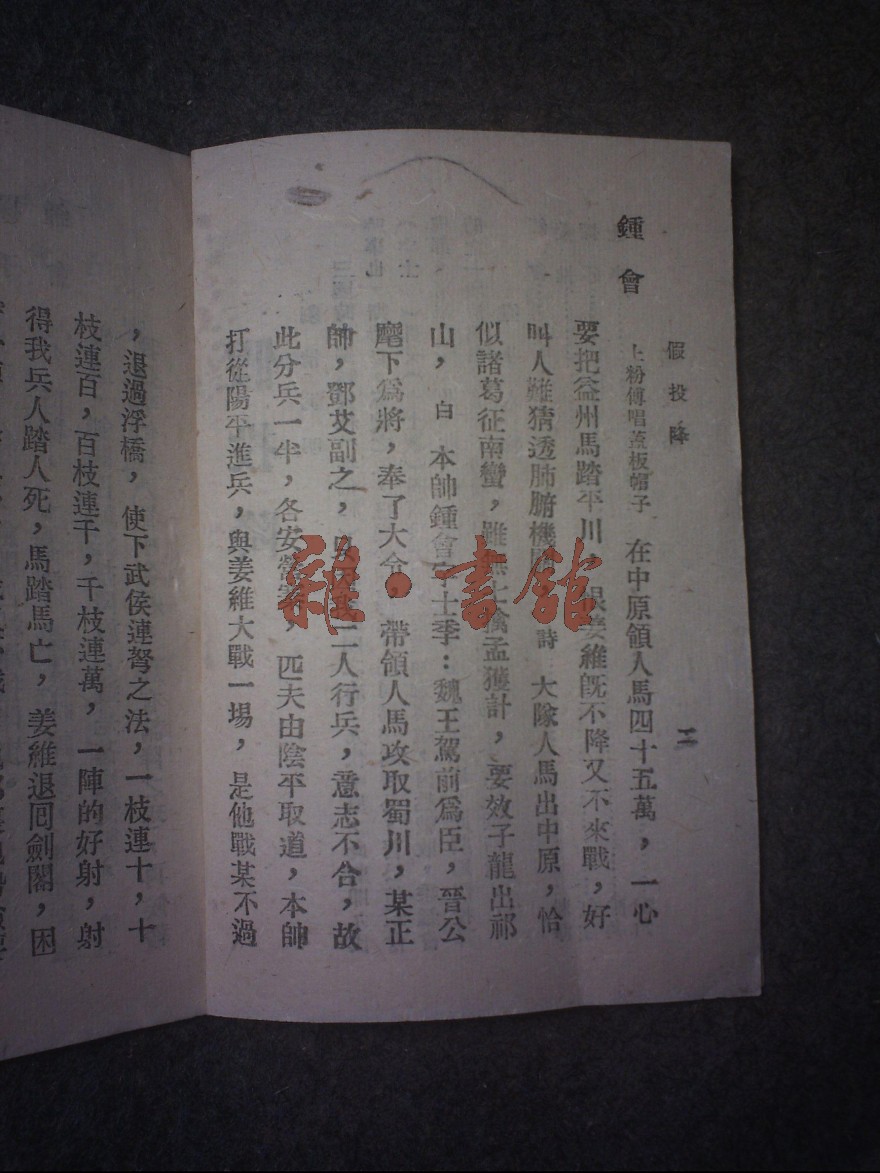 假投降
二
鍾會
上粉傅唱蓋板帽子 在中原領人馬四十五萬，一心
要把益州馬踏平川，恨姜維旣不降又不來戰，好
叫人難猜透肺腑機 詩 大隊人馬出中原，恰
似諸葛征南蠻，雖 擒孟獲計，要效子龍出祁
山，白 本帥鍾會字士季：魏王駕前爲臣，晉公
麾下爲將，奉了大令，帶領人馬攻取蜀川，某正
帥，鄧艾副之， 二人行兵，意志不合，故
此分兵一半，各安營寨，匹夫由陰平取道，本帥
打從陽平進兵，與姜維大戰一場，是他戰某不過
，退過浮橋，使下武侯連弩之法，一枝連十，十
枝連百，百枝連千，千枝連萬，一陣的好射，射
得我兵人踏人死，馬踏馬亡，姜維退囘劍閣，困
雜·書館